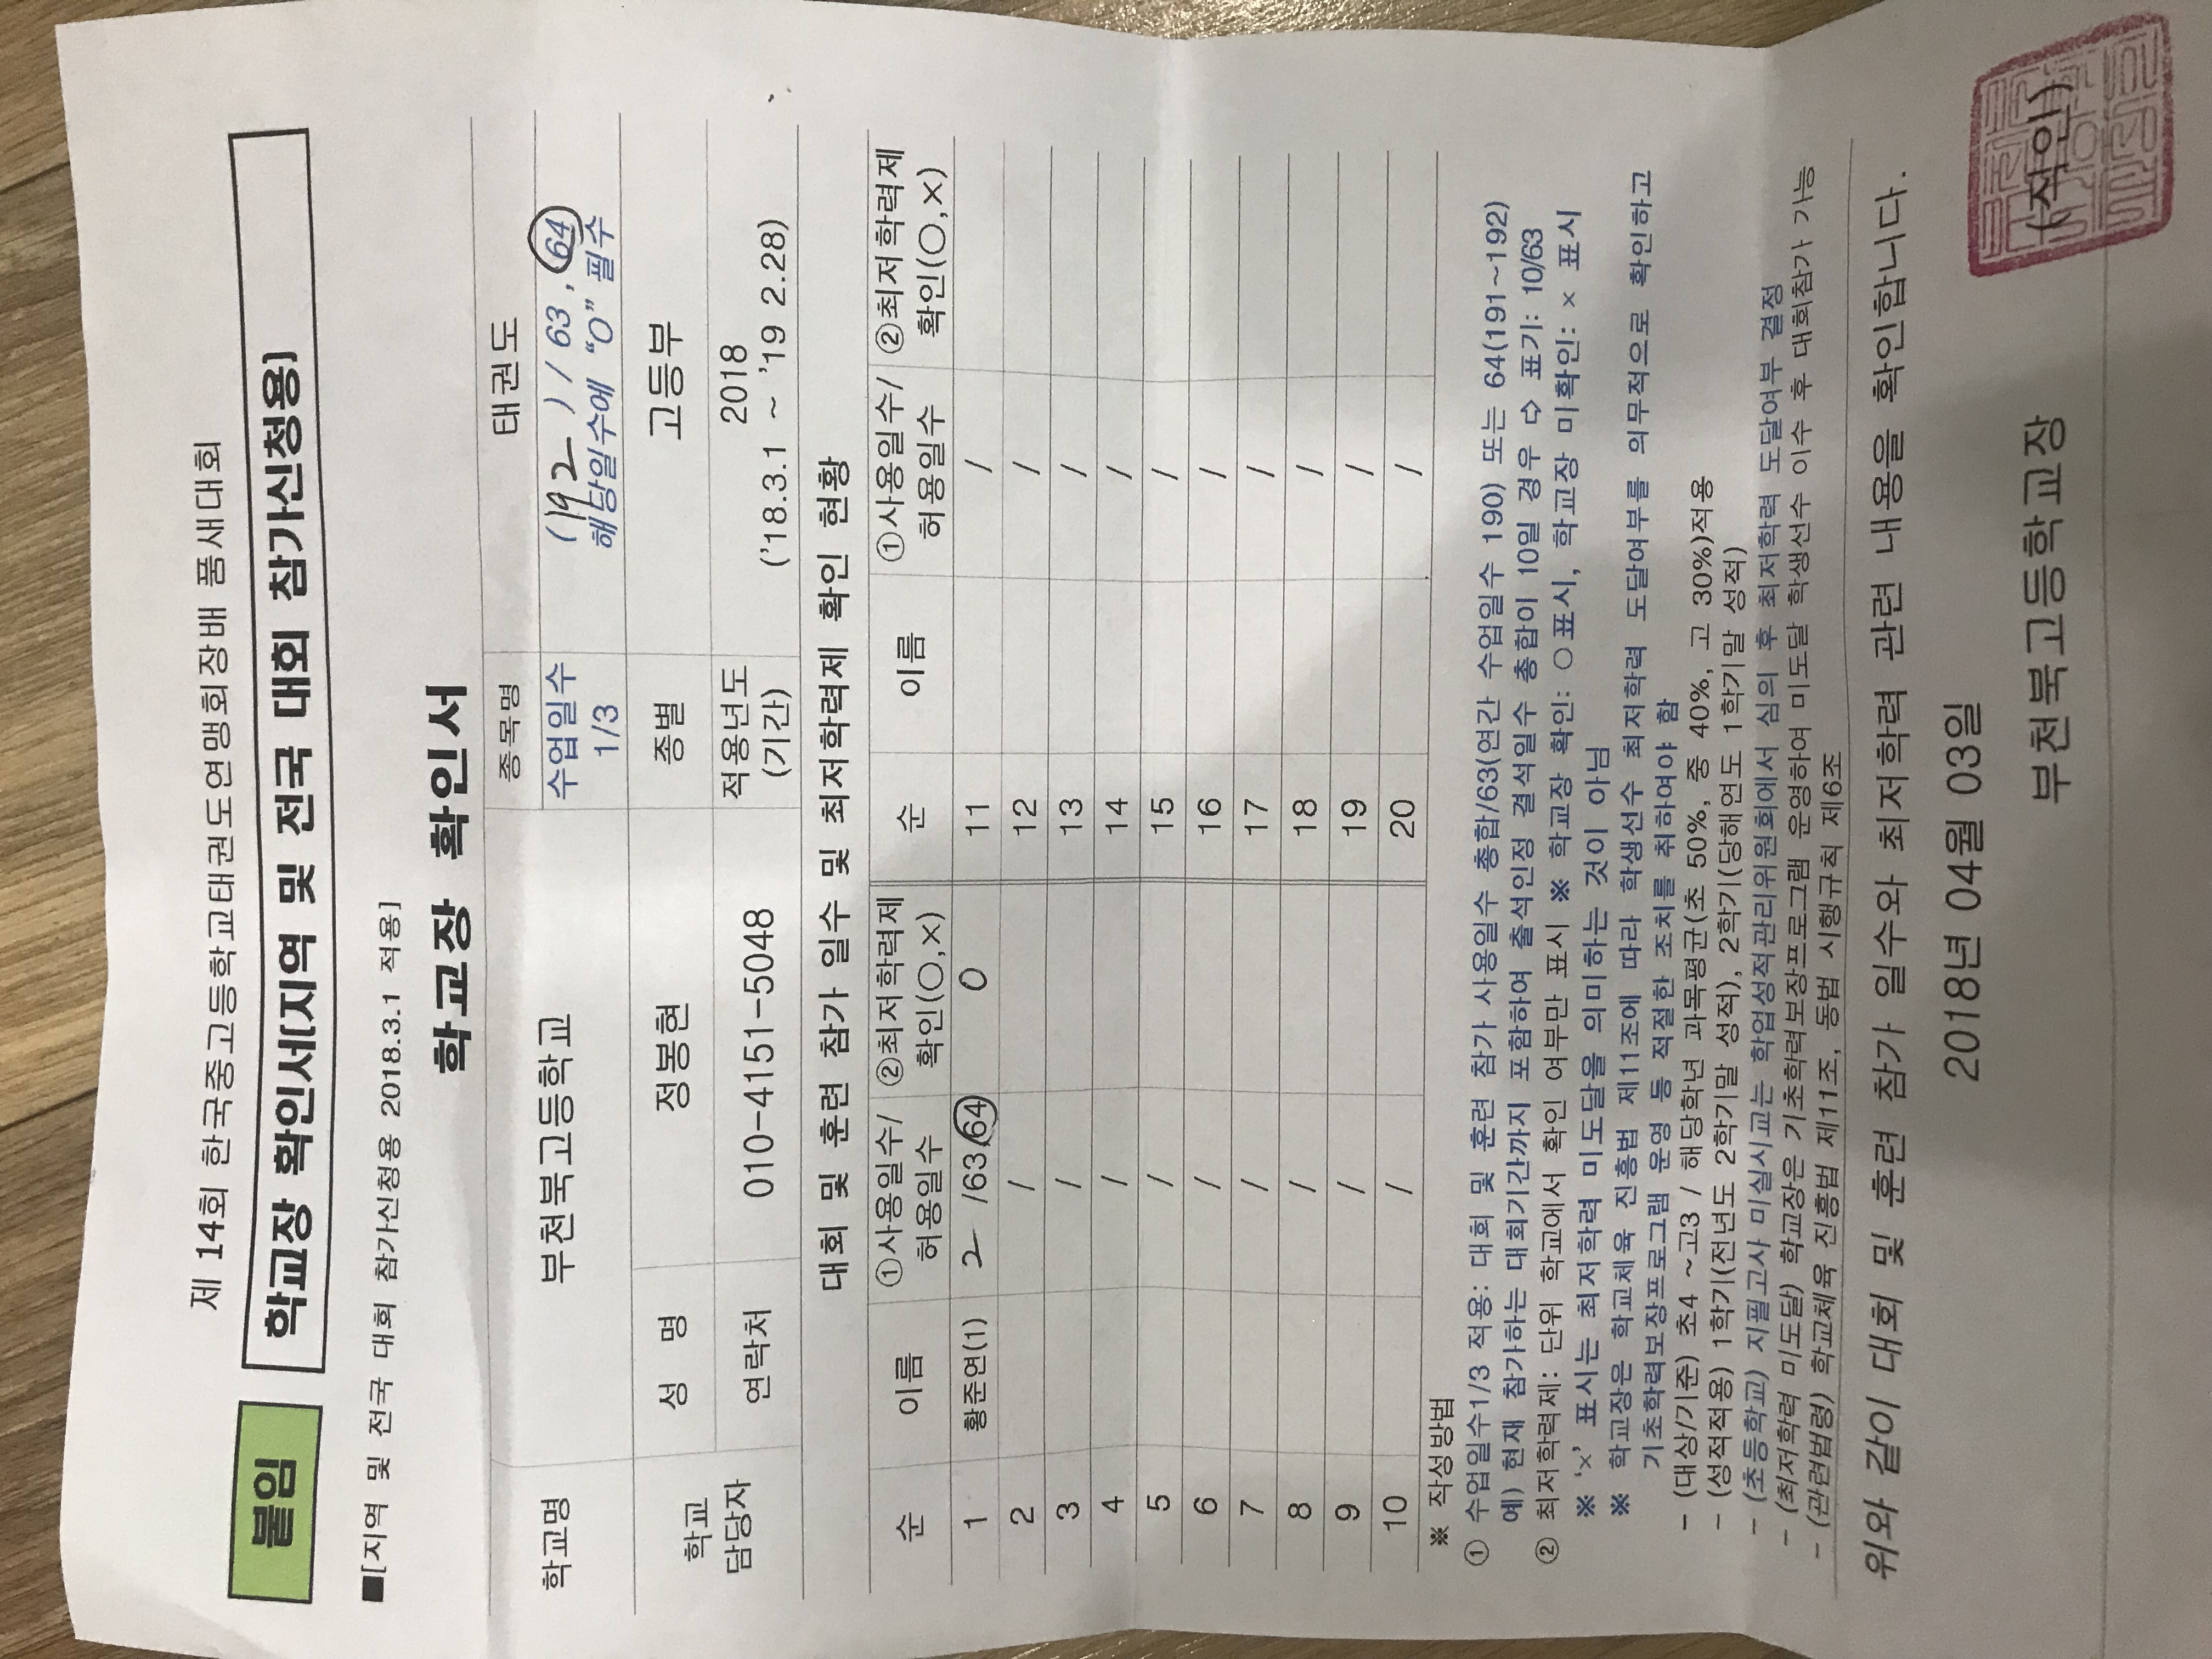 제 14회 한국중고등학교태권도연맹회장배 품새대회
붙임
학교장 확인서[지역 및 전국 대회 참가신청용]
■[지역 및 전국 대회 참가신청용 2018.3.1 적용]
학교장 확인서
학교명 부천북고등학교 종목명 태권도
수업일수 1/3 (192) / 63, 64
해당일수에 “O” 필수
학교 담당자 성 명 정봉현 종별 고등부
연락처 010-4151-5048 적용년도 (기간) 2018
('18.3.1 ~ '19 2.28)
대회 및 훈련 참가 일수 및 최저학력제 확인 현황
순 이름 ①사용일수/허용일수 ②최저학력제 확인(○,×) 순 이름 ①사용일수/허용일수 ②최저학력제 확인(○,×)
1 황준연(1) 2 /63,64 O 11 /
2 / 12 /
3 / 13 /
4 / 14 /
5 / 15 /
6 / 16 /
7 / 17 /
8 / 18 /
9 / 19 /
10 / 20 /
※ 작성방법
① 수업일수1/3 적용: 대회 및 훈련 참가 사용일수 총합/63(연간 수업일수 190) 또는 64(191~192)
예) 현재 참가하는 대회기간까지 포함하여 출석인정 결석일수 총합이 10일 경우 ⇨ 표기: 10/63
② 최저학력제: 단위 학교에서 확인 여부만 표시 ※ 학교장 확인: ○ 표시, 학교장 미확인: × 표시
※ ‘×’ 표시는 최저학력 미도달을 의미하는 것이 아님
※ 학교장은 학교체육 진흥법 제11조에 따라 학생선수 최저학력 도달여부를 의무적으로 확인하고
기초학력보장프로그램 운영 등 적절한 조치를 취하여야 함
- (대상/기준) 초4 ~고3 / 해당학년 과목평균(초 50%, 중 40%, 고 30%)적용
- (성적적용) 1학기(전년도 2학기말 성적), 2학기(당해연도 1학기말 성적)
- (초등학교) 지필고사 미실시교는 학업성적관리위원회에서 심의 후 최저학력 도달여부 결정
- (최저학력 미도달) 학교장은 기초학력보장프로그램 운영하여 미도달 학생선수 이수 후 대회참가 가능
- (관련법령) 학교체육 진흥법 제11조, 동법 시행규칙 제6조
위와 같이 대회 및 훈련 참가 일수와 최저학력 관련 내용을 확인합니다.
2018년 04월 03일
부천북고등학교장 (직인)